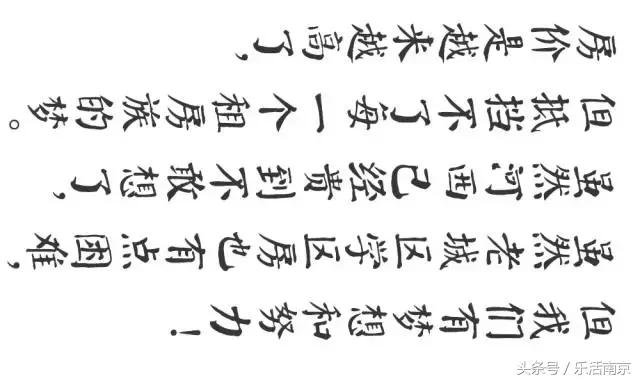 房价是越来越高了，
但抵挡不了每一个租房族的梦。
虽然河西已经贵到不敢想了，
虽然老城区学区房也有点困难，
但我们有梦想和努力！
头条号 / 乐活南京